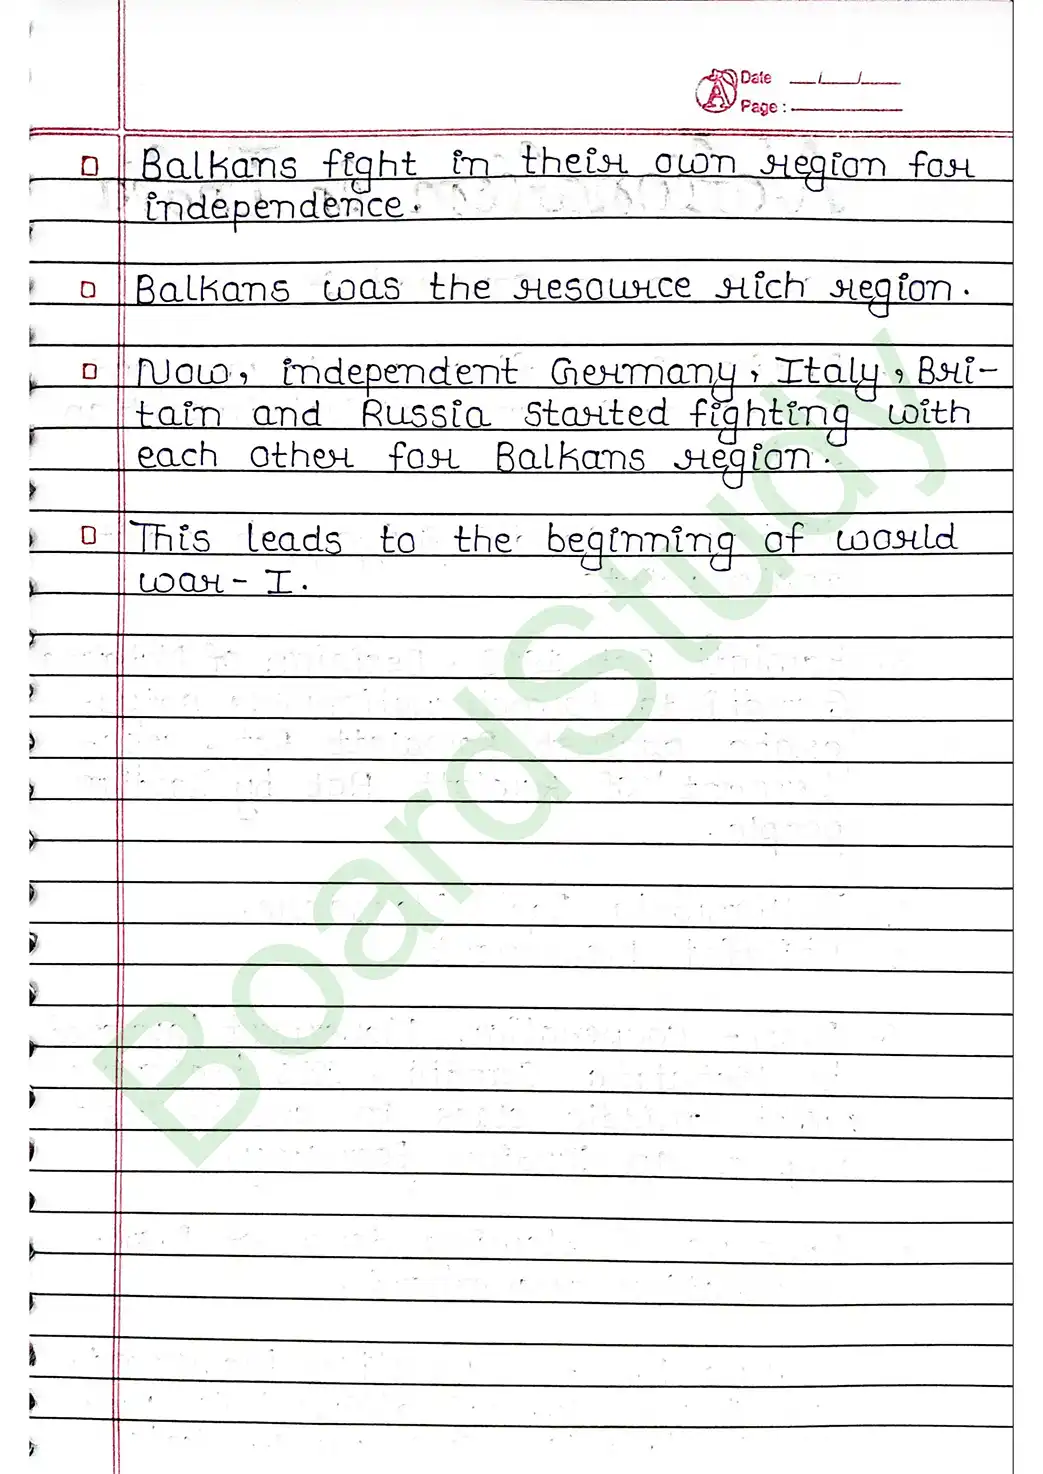 Date __/__/__
Page : ________
□ Balkans fight in their own region for
independence.
□ Balkans was the resource rich region.
□ Now, independent Germany, Italy, Bri-
tain and Russia started fighting with
each other for Balkans region.
□ This leads to the beginning of world
war - I.
BoardStudy